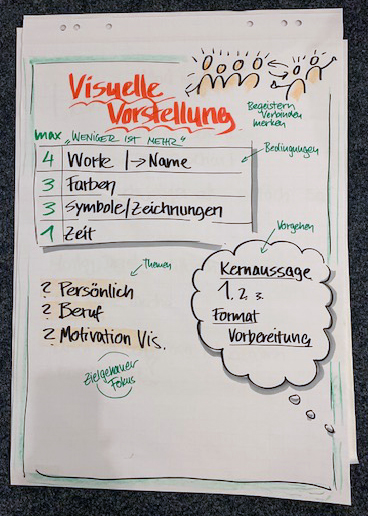 Visuelle
Vorstellung
Begeistern
Verbinden
merken
max „WENIGER IST MEHR“
4 Worte |→ Name
Bedingungen
3 Farben
3 Symbole/Zeichnungen
1 Zeit
Vorgehen
Themen
Kernaussage
1. 2. 3.
Format
Vorbereitung
? Persönlich
? Beruf
? Motivation Vis.
Zielgenauer
Fokus